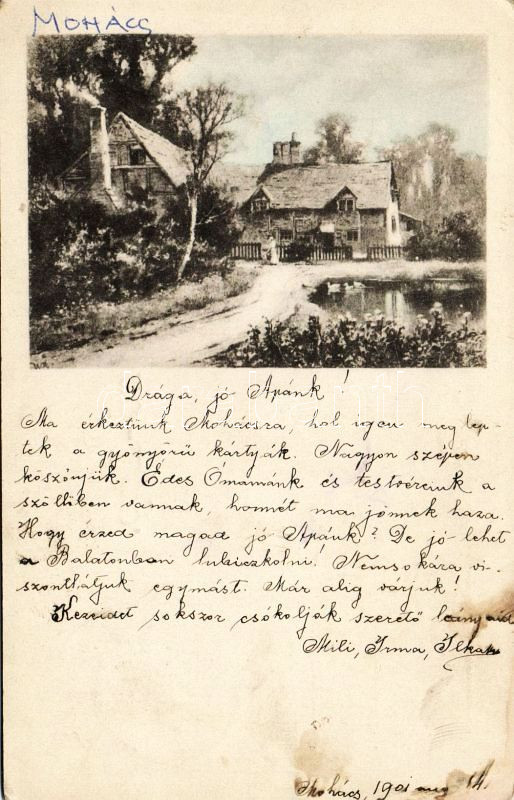 MOHÁCS
Drága, jó Apánk!
Ma érkeztünk Mohácsra, hol igen meglep-
tek a gyönyörű kártyák. Nagyon szépen
köszönjük. Édes Ómamánk és testvéreink a
szőllőben vannak, honnét ma jönnek haza.
Hogy érzed magad jó Apánk? De jó lehet
a Balatonban lubiczkolni. Nemsokára vi-
szonthátjuk egymást. Már alig várjuk!
Kezeidet sokszor csókolják szerető leányaid
Mili, Irma, Ilka
Mohács, 1901 aug 14.